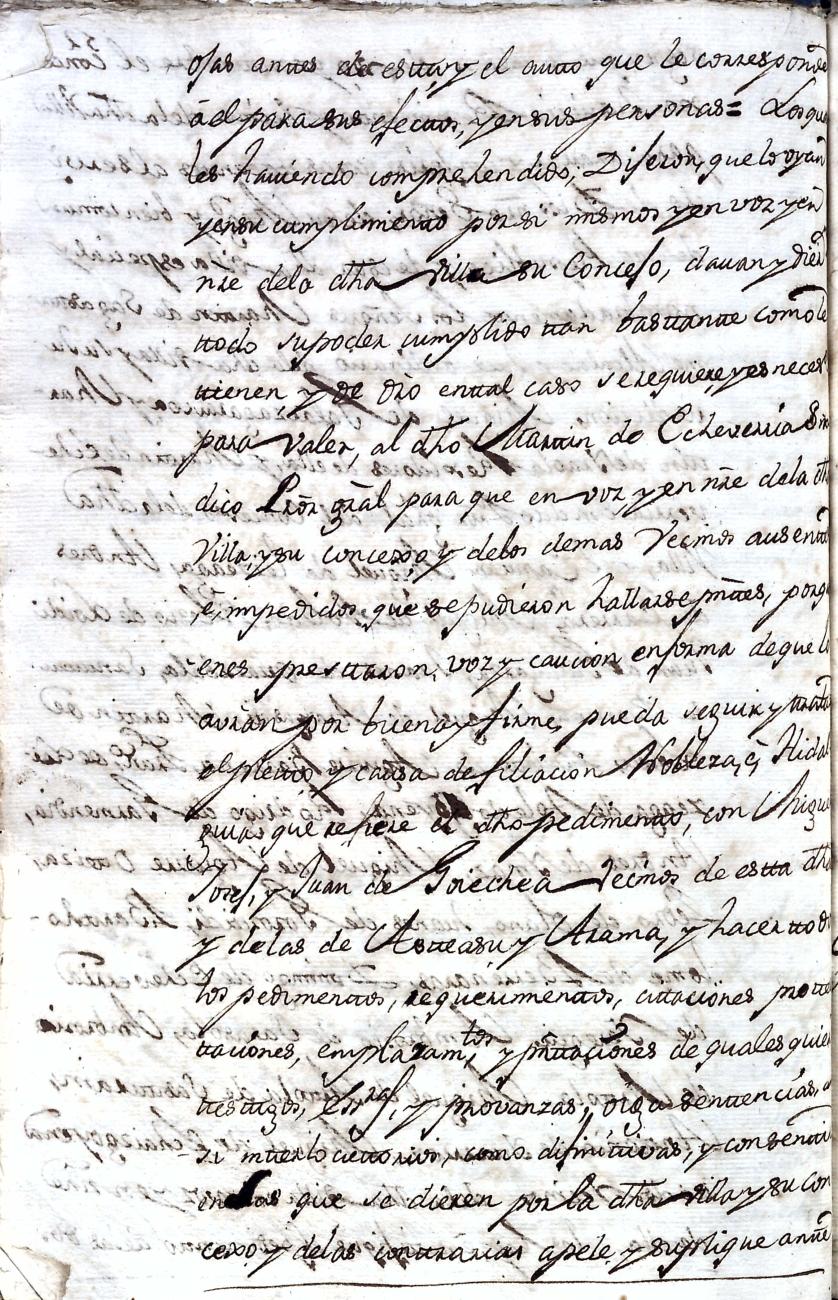 ojas anttes de estta, y el autto que le corresponde
á el para sus efecttos, y en sus personas= Los qua
les haviendo comprehendido, Dijeron, que lo oyan
y en su cumplimiento por si mismos y en voz y en
nre de la dha villa su Concejo, davan y dieron
ttodo su poder cumplido ttan basttantte como le
ttienen y de dro en ttal caso se requiere, y es neces
para valer, al dho Martin de Echeverria Sin
dico Pror gral para que en voz, y en nre de la dha
Villa, y su concexo, y de los demas Vecinos ausentt
é, impedidos que se pudieron hallarse pnttes, por qui
enes presttaron, voz y caucion en forma de que lo
avrán por bueno y firme, pueda seguir y trattar
el pleitto y causa de filiacion Nobleza, é, Hidal
guias que refiere el dho pedimentto, con Miguel
Josef, y Juan de Goiechea Vecinos de estta dha
y de las de Astteasu y Arama, y hacer ttodos
los pedimenttos, requerimienttos, cittaciones prottes
ttaciones, emplazamttos, y prnttaciones de quales quier
testtigos, Essras, y provanzas, oiga senttencias, a
si intterlocuttorias, como difinittivas, y consentta
en las que se dieren por la dha villa y su con
cexo, y de las conttrarias apele, y suplique antte